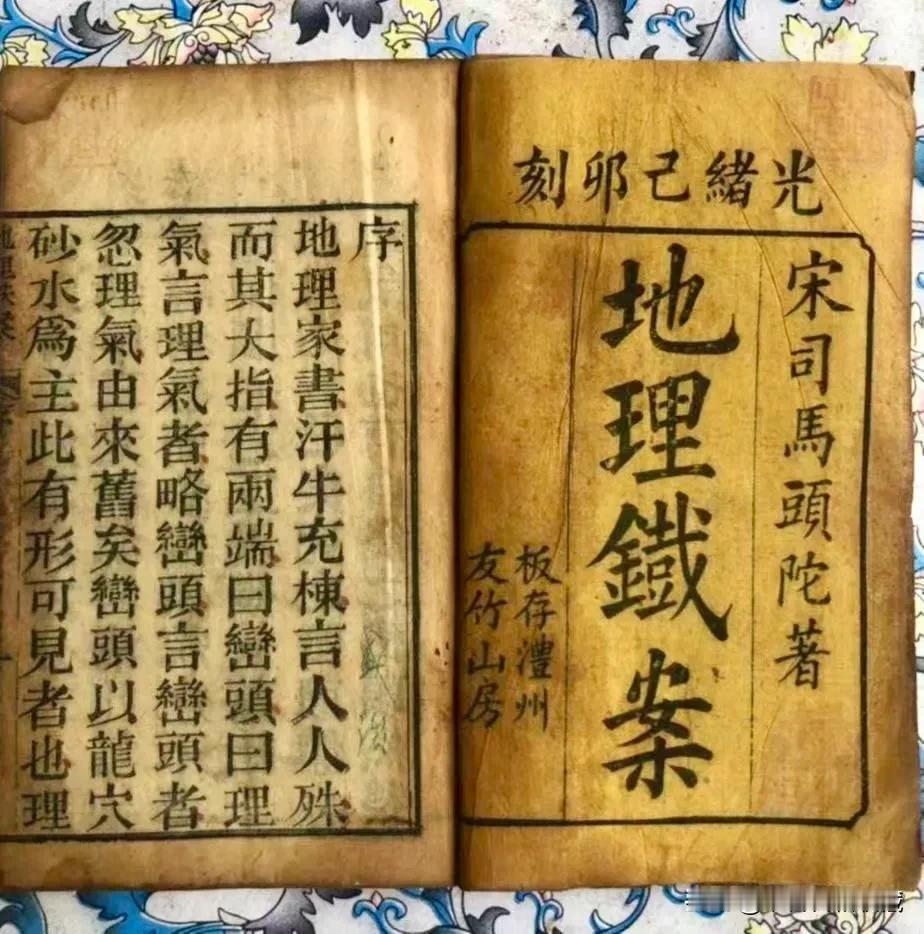 光緒己卯刻
宋司馬頭陀著
地理鐵案
板存澧州
友竹山房
序
地理家書汗牛充棟言人人殊
而其大指有兩端曰巒頭曰理
氣言理氣者略巒頭言巒頭者
忽理氣由來舊矣巒頭以龍穴
砂水爲主此有形可見者也理